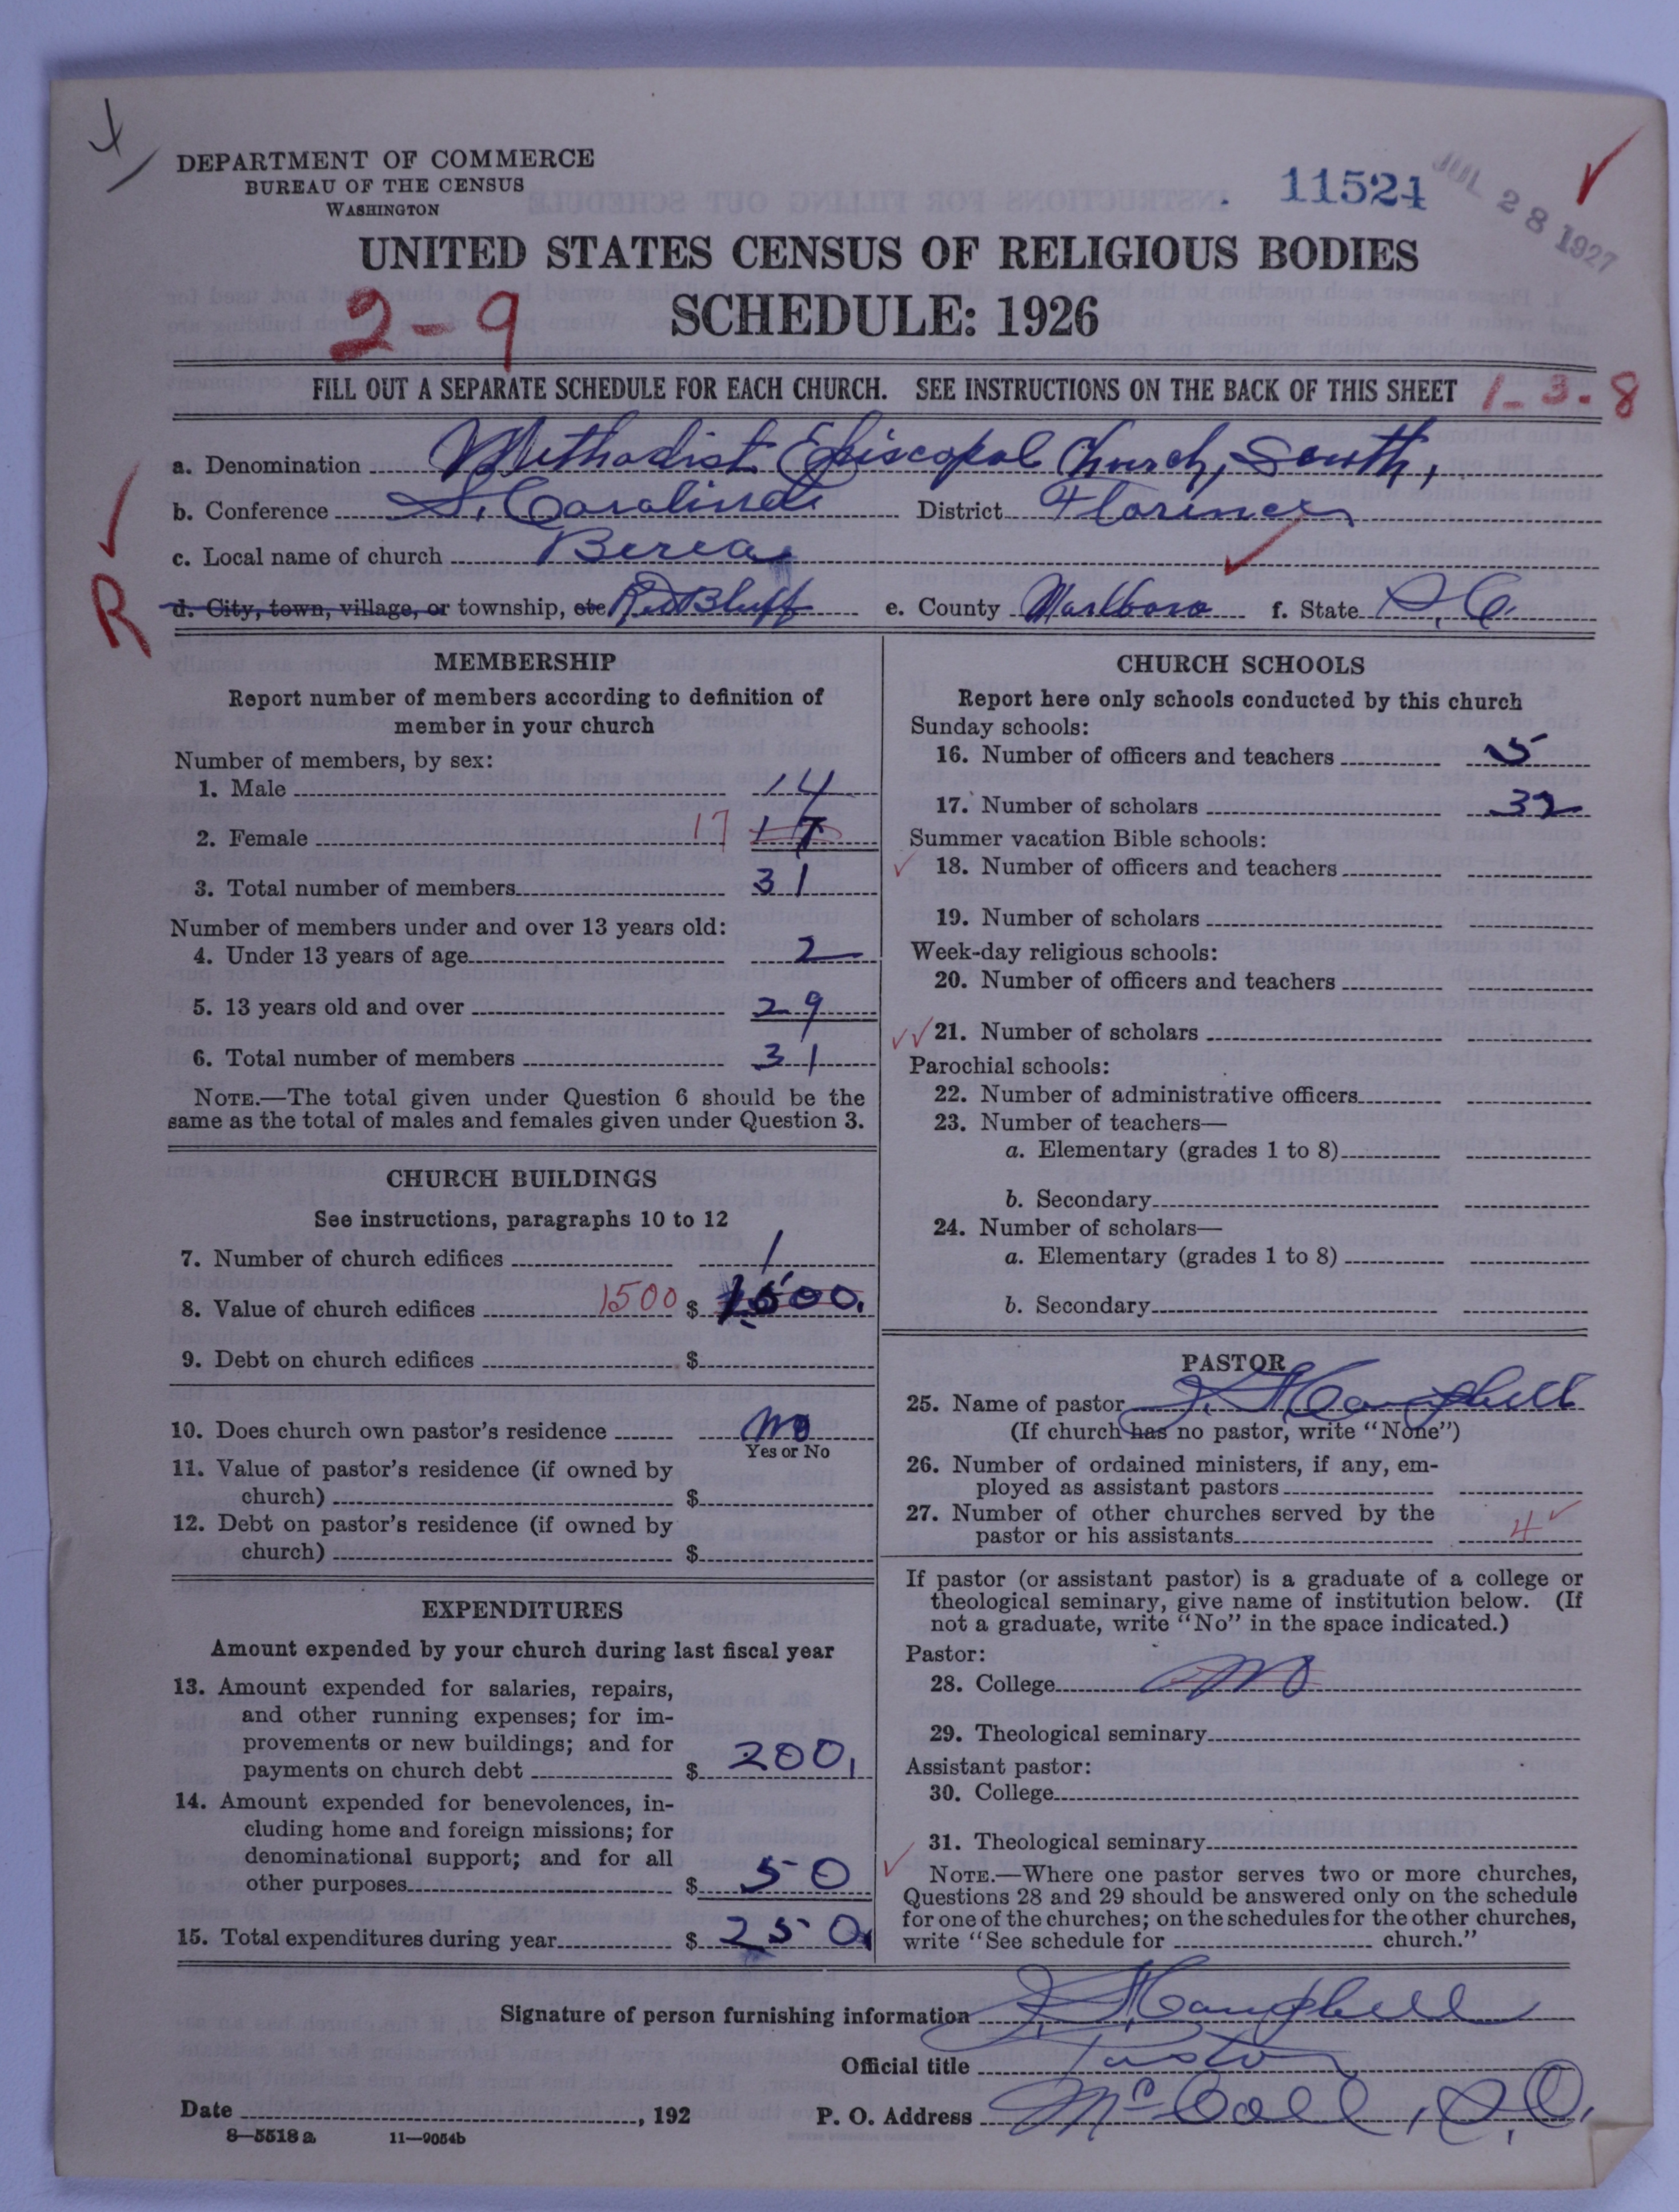 DEPARTMENT OF COMMERCE
BUREAU OF THE CENSUS
WASHINGTON
11521
JUL 28 1927
UNITED STATES CENSUS OF RELIGIOUS BODIES
2-9 SCHEDULE: 1926
FILL OUT A SEPARATE SCHEDULE FOR EACH CHURCH. SEE INSTRUCTIONS ON THE BACK OF THIS SHEET 1-3-8
a. Denomination Methodist Episcopal Church, South,
b. Conference S. Carolina District Florence
c. Local name of church Berea
R
d. City, town, village, or township, etc Red Bluff e. County Marlboro f. State S.C.
MEMBERSHIP
Report number of members according to definition of
member in your church
Number of members, by sex:
1. Male 14
2. Female 17 17
3. Total number of members 31
Number of members under and over 13 years old:
4. Under 13 years of age 2
5. 13 years old and over 29
6. Total number of members 31
NOTE.—The total given under Question 6 should be the
same as the total of males and females given under Question 3.
CHURCH BUILDINGS
See instructions, paragraphs 10 to 12
7. Number of church edifices 1
8. Value of church edifices 1500 $ 1500.
9. Debt on church edifices $
10. Does church own pastor's residence No
Yes or No
11. Value of pastor's residence (if owned by
church) $
12. Debt on pastor's residence (if owned by
church) $
EXPENDITURES
Amount expended by your church during last fiscal year
13. Amount expended for salaries, repairs,
and other running expenses; for im-
provements or new buildings; and for
payments on church debt $ 200.
14. Amount expended for benevolences, in-
cluding home and foreign missions; for
denominational support; and for all
other purposes $ 50
15. Total expenditures during year $ 250.
CHURCH SCHOOLS
Report here only schools conducted by this church
Sunday schools:
16. Number of officers and teachers 5
17. Number of scholars 32
Summer vacation Bible schools:
18. Number of officers and teachers
19. Number of scholars
Week-day religious schools:
20. Number of officers and teachers
21. Number of scholars
Parochial schools:
22. Number of administrative officers
23. Number of teachers—
a. Elementary (grades 1 to 8)
b. Secondary
24. Number of scholars—
a. Elementary (grades 1 to 8)
b. Secondary
PASTOR
25. Name of pastor Campbell
(If church has no pastor, write "None")
26. Number of ordained ministers, if any, em-
ployed as assistant pastors
27. Number of other churches served by the
pastor or his assistants 4
If pastor (or assistant pastor) is a graduate of a college or
theological seminary, give name of institution below. (If
not a graduate, write "No" in the space indicated.)
Pastor:
28. College No
29. Theological seminary
Assistant pastor:
30. College
31. Theological seminary
NOTE.—Where one pastor serves two or more churches,
Questions 28 and 29 should be answered only on the schedule
for one of the churches; on the schedules for the other churches,
write "See schedule for church."
Signature of person furnishing information Campbell
Official title Pastor
Date , 192 P. O. Address McColl, S.C.
8—5518a 11—9054b